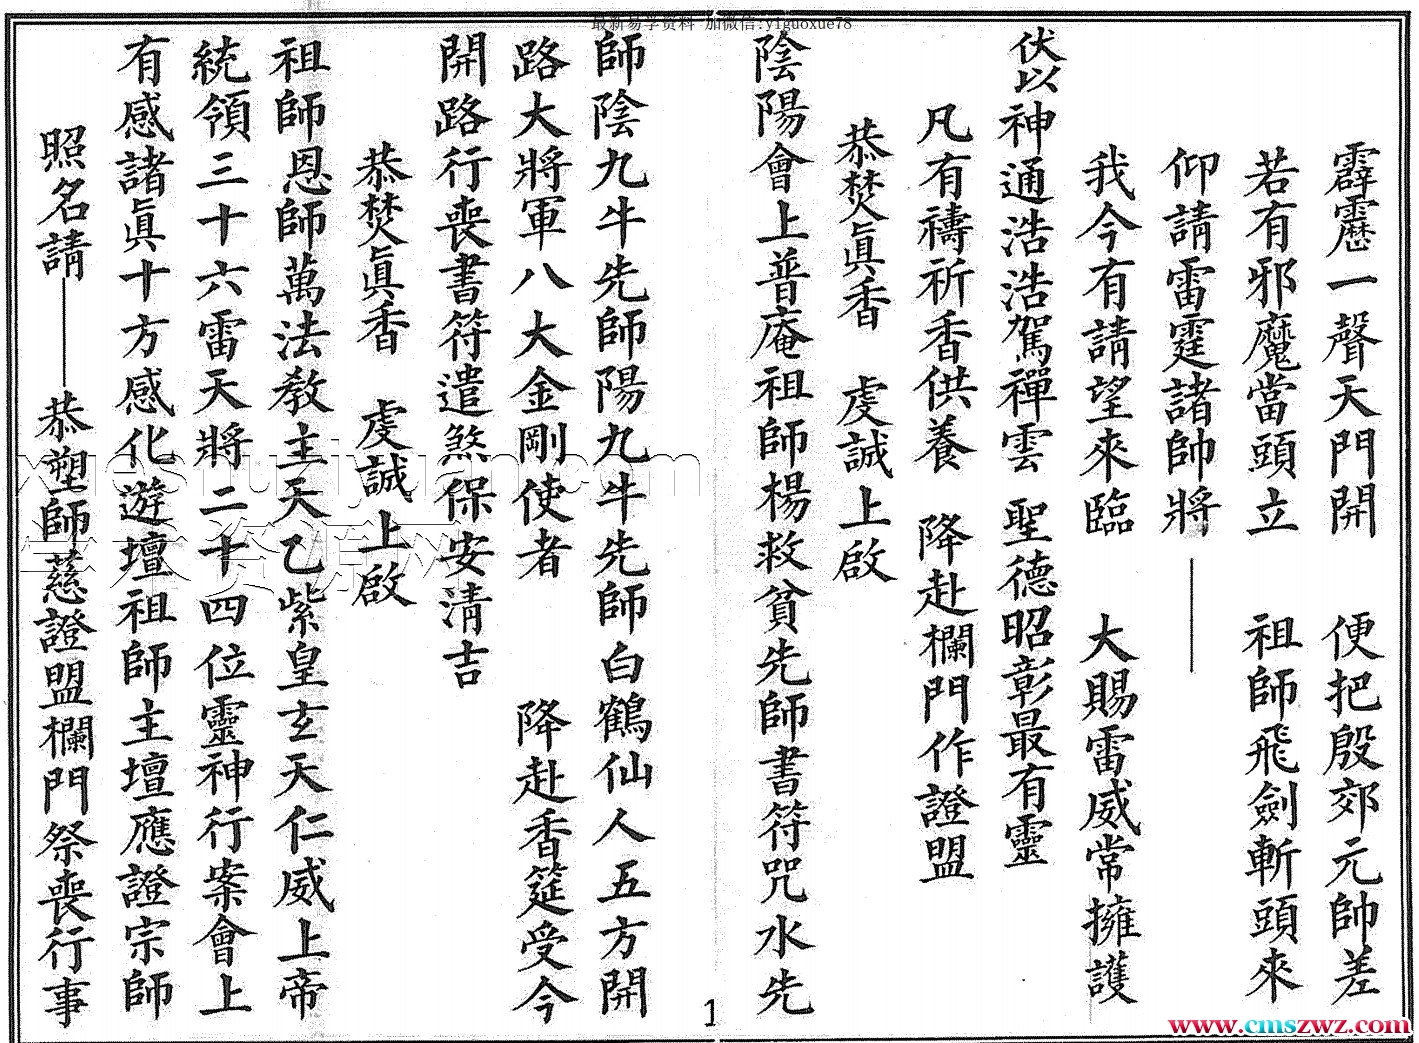 最新易学资料 加微信:yiguoxue78
霹靂一聲天門開 便把殷郊元帥差
若有邪魔當頭立 祖師飛劍斬頭來
仰請雷霆諸帥將——
我今有請望來臨 大賜雷威常擁護
伏以神通浩浩駕禪雲 聖德昭彰最有靈
凡有禱祈香供養 降赴欄門作證盟
恭焚眞香 虔誠上啟
陰陽會上普庵祖師楊救貧先師書符咒水先
師陰九牛先師陽九牛先師白鶴仙人五方開
路大將軍八大金剛使者 降赴香筵受今
開路行喪書符遣煞保安清吉
恭焚眞香 虔誠上啟
祖師恩師萬法教主天乙紫皇玄天仁威上帝
統領三十六雷天將二十四位靈神行案會上
有感諸眞十方感化遊壇祖師主壇應證宗師
照名請——恭塑師慈證盟欄門祭喪行事
1
xueshuziyuan.com
学术资源网
www.cmszwz.com